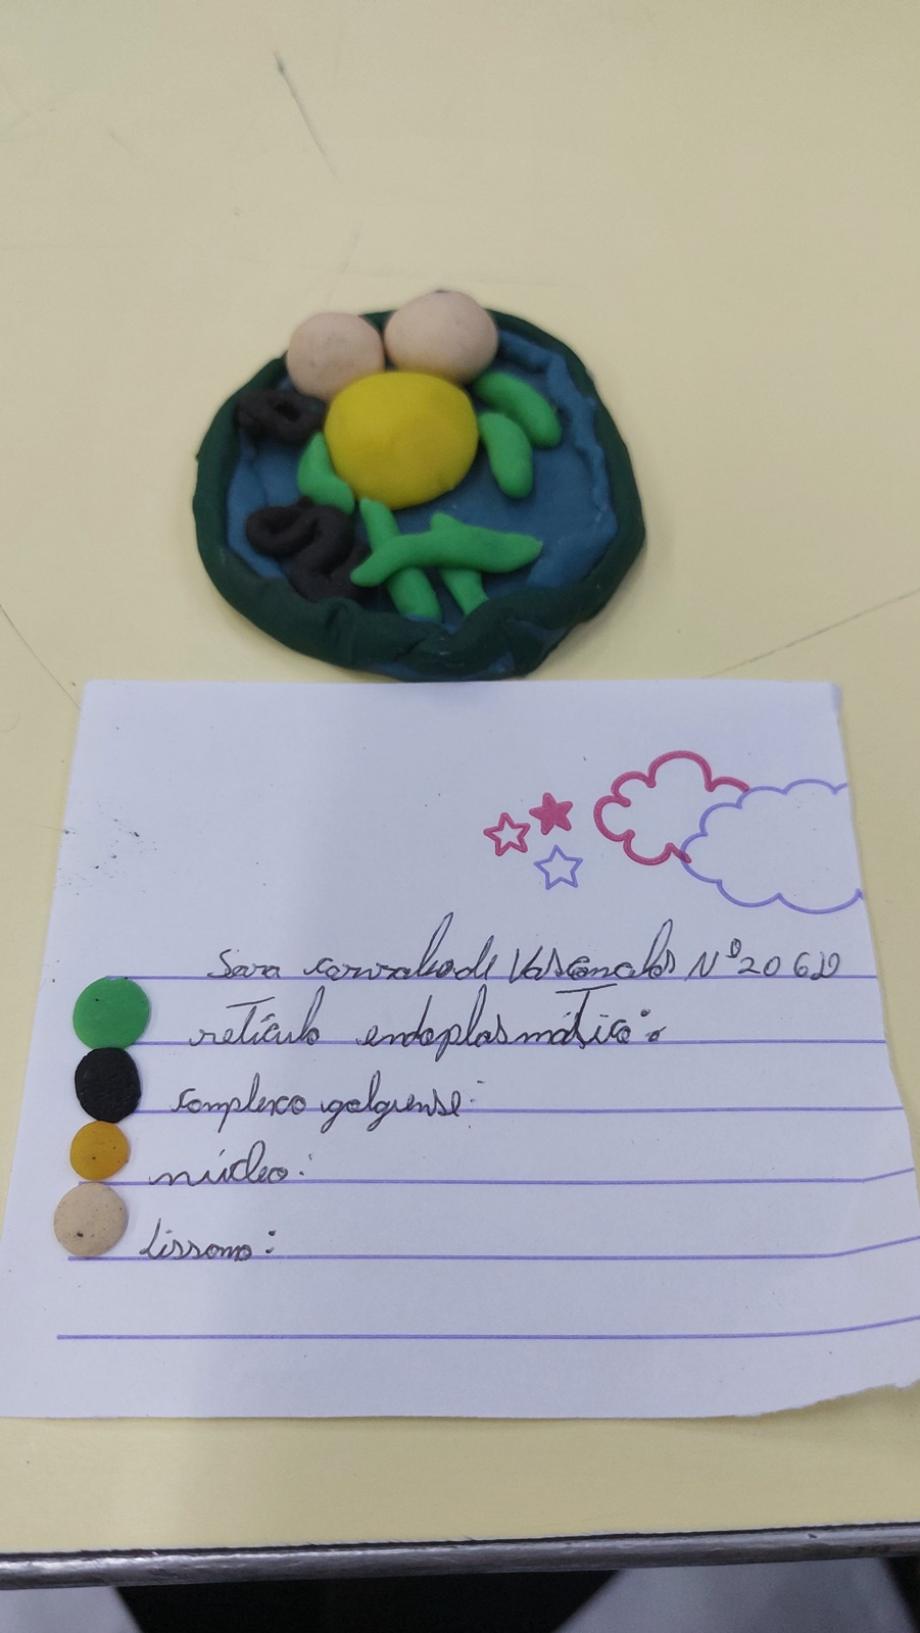 Sara carvalho de Vasconcelos Nº 20 6D
retículo endoplasmático:
complexo golgiense:
núcleo:
Lissomo: